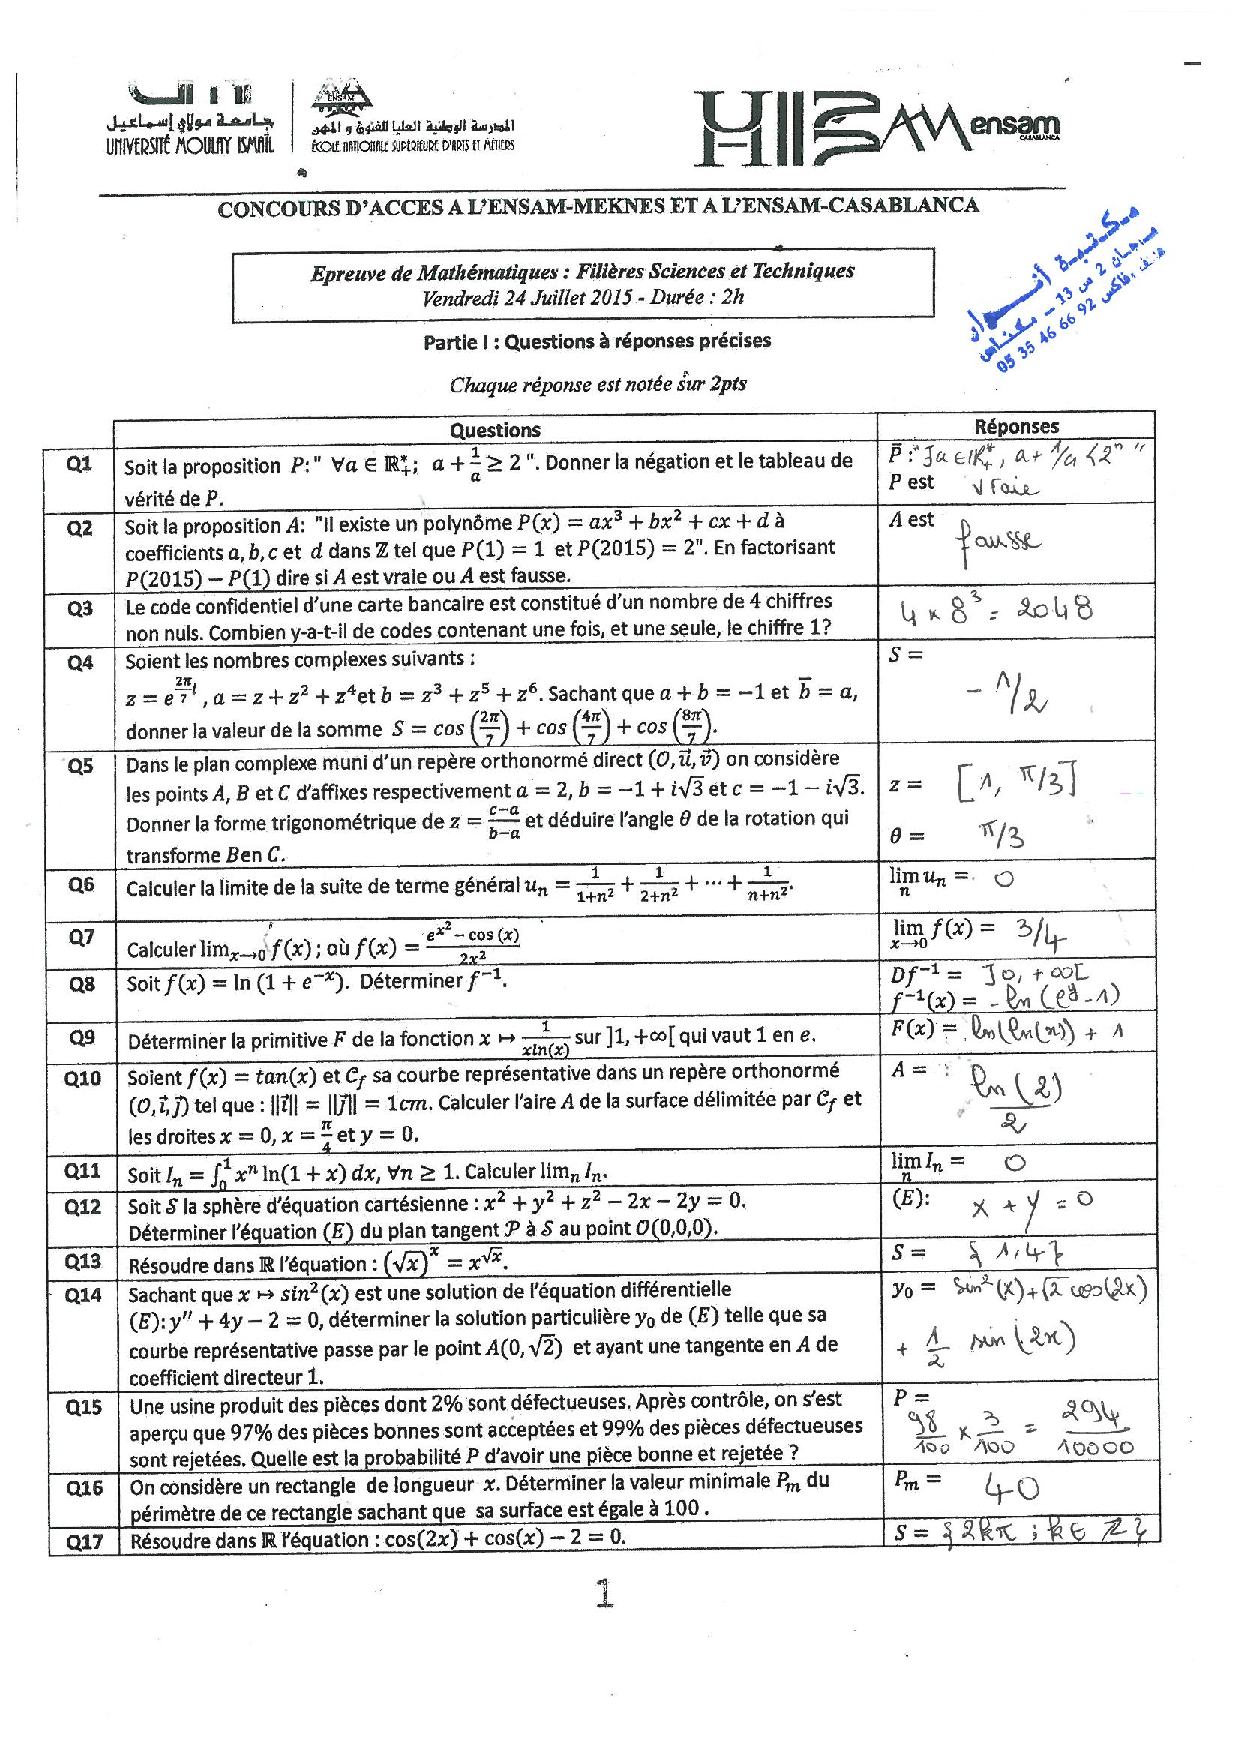 جامعة مولاي إسماعيل
UNIVERSITÉ MOULAY ISMAÏL
المدرسة الوطنية العليا للفنون و المهن
ÉCOLE NATIONALE SUPÉRIEURE D'ARTS ET MÉTIERS
ensam
CASABLANCA
CONCOURS D'ACCES A L'ENSAM-MEKNES ET A L'ENSAM-CASABLANCA
مكتبة أنـــوار
05 35 46 66 92
Epreuve de Mathématiques : Filières Sciences et Techniques
Vendredi 24 Juillet 2015 - Durée : 2h
Partie I : Questions à réponses précises
Chaque réponse est notée sur 2pts
Questions Réponses
Q1 Soit la proposition P:" ∀a ∈ ℝ*₊; a + 1/a ≥ 2 ". Donner la négation et le tableau de P̄ : "∃a ∈ ℝ*₊, a + 1/a < 2"
vérité de P. P est vraie
Q2 Soit la proposition A: "Il existe un polynôme P(x) = ax³ + bx² + cx + d à A est fausse
coefficients a, b, c et d dans ℤ tel que P(1) = 1 et P(2015) = 2". En factorisant
P(2015) − P(1) dire si A est vraie ou A est fausse.
Q3 Le code confidentiel d'une carte bancaire est constitué d'un nombre de 4 chiffres 4 × 8³ = 2048
non nuls. Combien y-a-t-il de codes contenant une fois, et une seule, le chiffre 1?
Q4 Soient les nombres complexes suivants : S = −1/2
z = e^(2π/7 i), a = z + z² + z⁴ et b = z³ + z⁵ + z⁶. Sachant que a + b = −1 et b̄ = a,
donner la valeur de la somme S = cos(2π/7) + cos(4π/7) + cos(8π/7).
Q5 Dans le plan complexe muni d'un repère orthonormé direct (O, u⃗, v⃗) on considère
les points A, B et C d'affixes respectivement a = 2, b = −1 + i√3 et c = −1 − i√3. z = [1, π/3]
Donner la forme trigonométrique de z = (c−a)/(b−a) et déduire l'angle θ de la rotation qui θ = π/3
transforme B en C.
Q6 Calculer la limite de la suite de terme général uₙ = 1/(1+n²) + 1/(2+n²) + ⋯ + 1/(n+n²). lim uₙ = 0
n
Q7 Calculer lim x→0 f(x) ; où f(x) = (e^(x²) − cos (x))/(2x²) lim x→0 f(x) = 3/4
Q8 Soit f(x) = ln (1 + e⁻ˣ). Déterminer f⁻¹. Df⁻¹ = ]0, +∞[
f⁻¹(x) = −ln(eʸ − 1)
Q9 Déterminer la primitive F de la fonction x ↦ 1/(xln(x)) sur ]1, +∞[ qui vaut 1 en e. F(x) = ln(ln(x)) + 1
Q10 Soient f(x) = tan(x) et 𝒞f sa courbe représentative dans un repère orthonormé A = ln(2)/2
(O, i⃗, j⃗) tel que : ||i⃗|| = ||j⃗|| = 1cm. Calculer l'aire A de la surface délimitée par 𝒞f et
les droites x = 0, x = π/4 et y = 0.
Q11 Soit Iₙ = ∫₀¹ xⁿ ln(1 + x) dx, ∀n ≥ 1. Calculer limₙ Iₙ. lim Iₙ = 0
n
Q12 Soit S la sphère d'équation cartésienne : x² + y² + z² − 2x − 2y = 0. (E): x + y = 0
Déterminer l'équation (E) du plan tangent 𝒫 à S au point O(0,0,0).
Q13 Résoudre dans ℝ l'équation : (√x)ˣ = x^√x. S = {1, 4}
Q14 Sachant que x ↦ sin²(x) est une solution de l'équation différentielle y₀ = sin²(x) + √2 cos(2x)
(E): y″ + 4y − 2 = 0, déterminer la solution particulière y₀ de (E) telle que sa + 1/2 sin(2x)
courbe représentative passe par le point A(0, √2) et ayant une tangente en A de
coefficient directeur 1.
Q15 Une usine produit des pièces dont 2% sont défectueuses. Après contrôle, on s'est P =
aperçu que 97% des pièces bonnes sont acceptées et 99% des pièces défectueuses 98/100 × 3/100 = 294/10000
sont rejetées. Quelle est la probabilité P d'avoir une pièce bonne et rejetée ?
Q16 On considère un rectangle de longueur x. Déterminer la valeur minimale Pₘ du Pₘ = 40
périmètre de ce rectangle sachant que sa surface est égale à 100 .
Q17 Résoudre dans ℝ l'équation : cos(2x) + cos(x) − 2 = 0. S = {2kπ ; k ∈ ℤ}
1